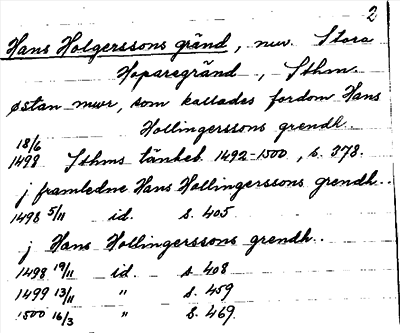 2
Hans Holgerssons gränd, nuv. Stora
Hoparegränd, Sthm.
østan mwr, som kallades fordom Hans
Hollingerssons grendh.
18/6
1498 Sthms tänkeb. 1492-1500, s. 378.
j framledne Hans Hollingerssons grendh..
1498 5/11 id. s. 405
j Hans Hollingerssons grendh..
1498 19/11 id. s. 408
1499 13/11 " s. 459
1500 16/3 " s. 469.